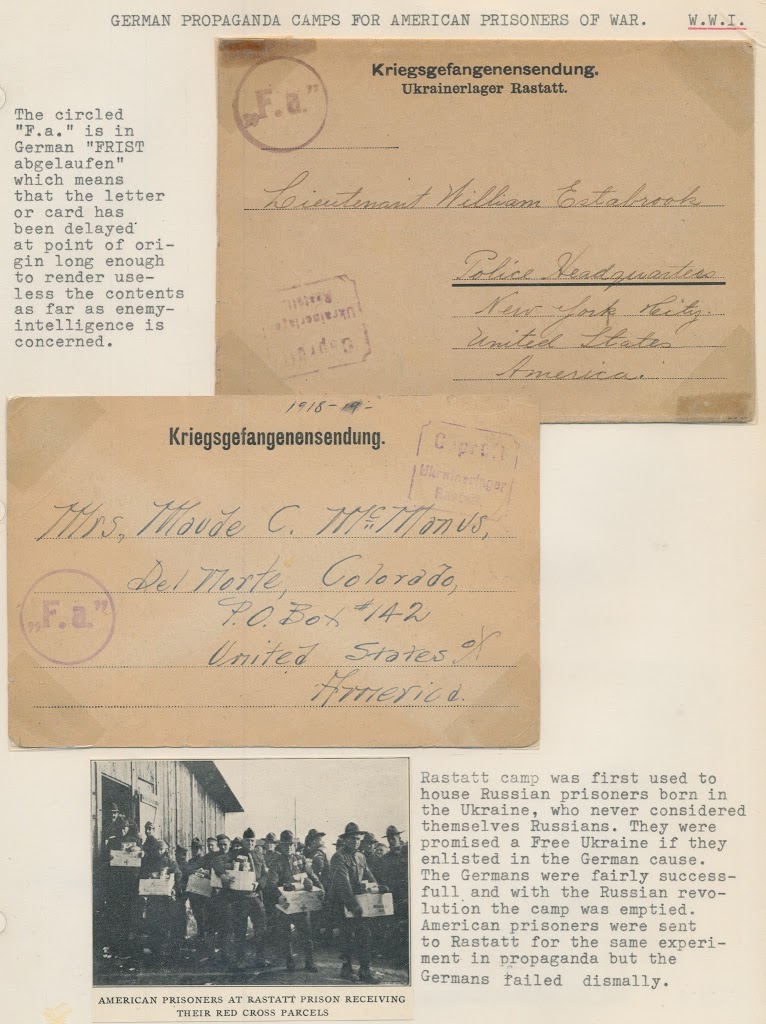 GERMAN PROPAGANDA CAMPS FOR AMERICAN PRISONERS OF WAR. W.W.I.
The circled
"F.a." is in
German "FRIST
abgelaufen"
which means
that the letter
or card has
been delayed
at point of ori-
gin long enough
to render use-
less the contents
as far as enemy-
intelligence is
concerned.
„F.a.”
Kriegsgefangenensendung.
Ukrainerlager Rastatt.
Lieutenant William Estabrook
Police Headquarters
New York City.
United States
America.
Geprüft
Ukrainerlager
Rastatt
1918-19-
Kriegsgefangenensendung.
Geprüft
Ukrainerlager
Rastatt
Mrs, Maude C. McManus,
Del Norte, Colorado,
P.O. Box #142
United States of
America.
„F.a.”
AMERICAN PRISONERS AT RASTATT PRISON RECEIVING
THEIR RED CROSS PARCELS
Rastatt camp was first used to
house Russian prisoners born in
the Ukraine, who never considered
themselves Russians. They were
promised a Free Ukraine if they
enlisted in the German cause.
The Germans were fairly success-
full and with the Russian revo-
lution the camp was emptied.
American prisoners were sent
to Rastatt for the same experi-
ment in propaganda but the
Germans failed dismally.